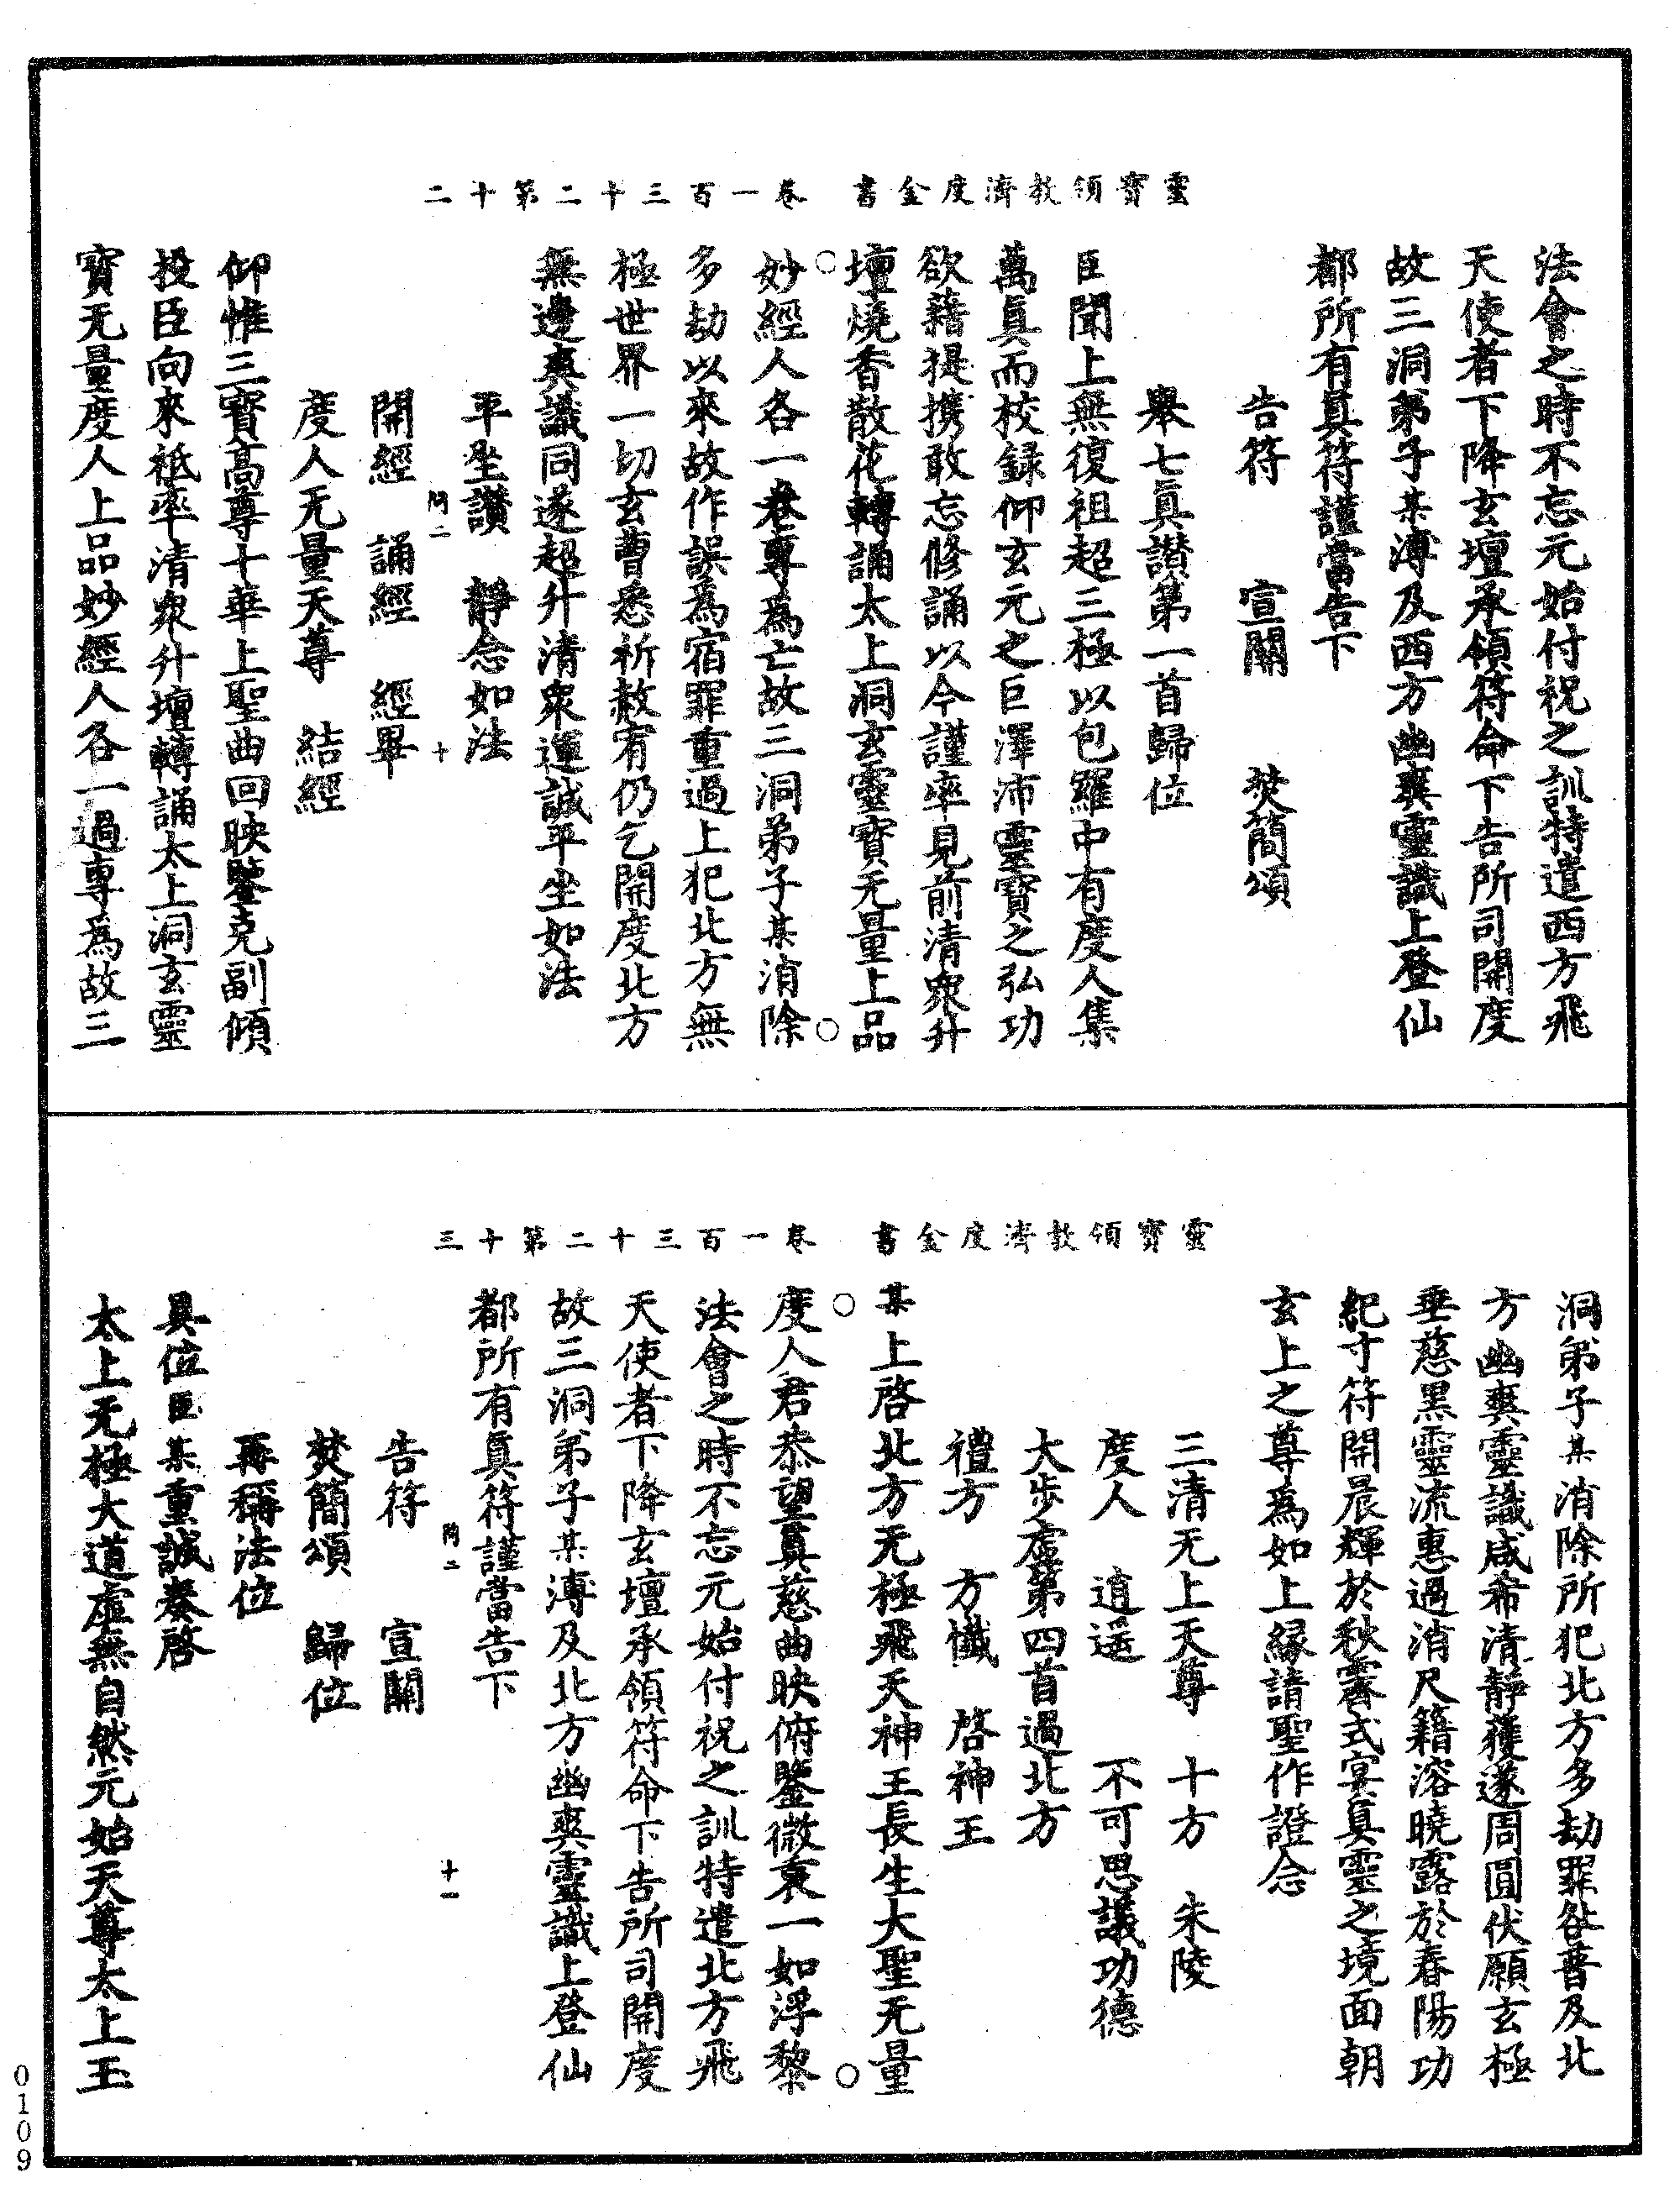 靈寶領教濟度金書　卷一百三十二第十二
法會之時不忘元始付祝之訓特遣西方飛
天使者下降玄壇承領符命下告所司開度
故三洞弟子某溥及西方幽爽靈識上登仙
都所有眞符謹當告下
告符　宣關　焚簡頌
舉七眞讃第一首歸位
臣聞上無復祖超三極以包羅中有度人集
萬眞而校録仰玄元之巨澤沛靈寶之弘功
欲藉提携敢忘修誦以今謹率見前清衆升
壇燒香散花轉誦太上洞玄靈寶无量上品
妙經人各一卷專爲亡故三洞弟子某消除
多劫以來故作誤爲宿罪重過上犯北方無
極世界一切玄曹悉祈赦宥仍乞開度北方
無邊爽識同遂超升清衆運誠平坐如法
平坐讃　靜念如法
十
開經　誦經　經畢
度人无量天尊　結經
仰惟三寶高尊十華上聖曲回映鑒克副傾
投臣向來祗率清衆升壇轉誦太上洞玄靈
寶无量度人上品妙經人各一過專爲故三
靈寶領教濟度金書　卷一百三十二第十三
洞弟子某消除所犯北方多劫罪咎普及北
方幽爽靈識咸希清靜獲遂周圓伏願玄極
垂慈黑靈流惠過消尺籍溶曉露於春陽功
紀寸符開晨輝於秋霽式宴眞靈之境面朝
玄上之尊爲如上縁請聖作證念
三清无上天尊　十方　朱陵
度人　逍遥　不可思議功德
大步虛第四首過北方
禮方　方懺　啓神王
某上啓北方无極飛天神王長生大聖无量
度人君恭望眞慈曲映俯鑒微衷一如浮黎
法會之時不忘元始付祝之訓特遣北方飛
天使者下降玄壇承領符命下告所司開度
故三洞弟子某溥及北方幽爽靈識上登仙
都所有眞符謹當告下
十一
告符　宣關
焚簡頌　歸位
再稱法位
具位臣某重誠奏啓
太上无極大道虛無自然元始天尊太上玉
0109